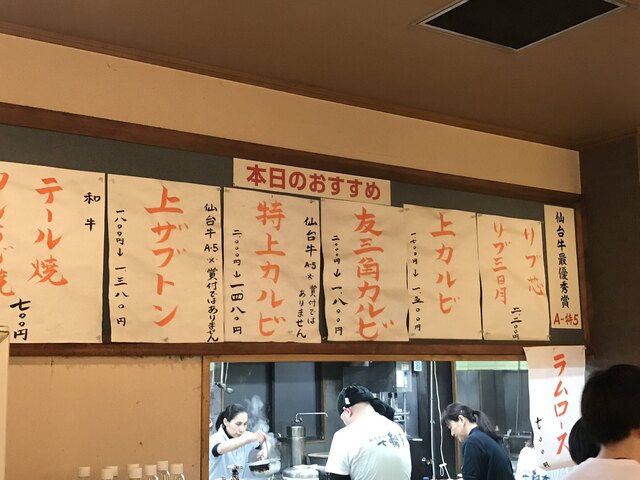 本日のおすすめ
仙台牛最優秀賞
A-特5
リブ芯
リブ三日月
二二〇〇円
上カルビ
一七〇〇円→一五〇〇円
友三角カルビ
二〇〇〇円→一八〇〇円
仙台牛A-5※賞付ではありません
特上カルビ
二〇〇〇円→一四八〇円
仙台牛A-5※賞付ではありません
上ザブトン
一八〇〇円→一三八〇円
和牛
テール焼
七〇〇円
ラムロース
七〇〇円